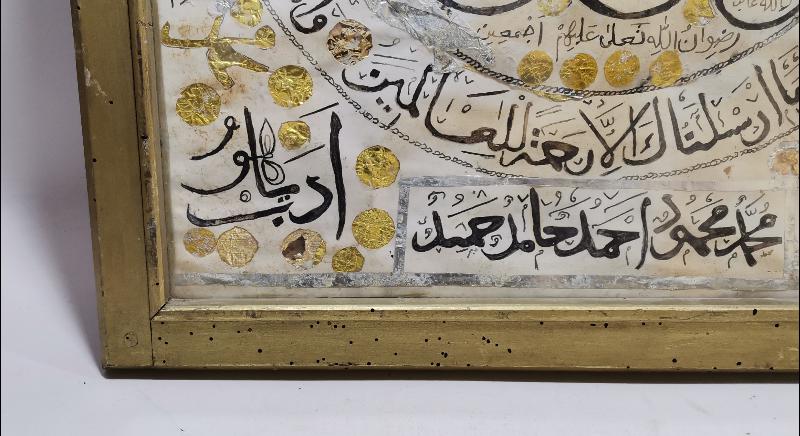 رضوان الله تعالى عليهم اجمعين
وما ارسلناك الا رحمة للعالمين
ادب ياهو
محمد محمود احمد حامد حميد